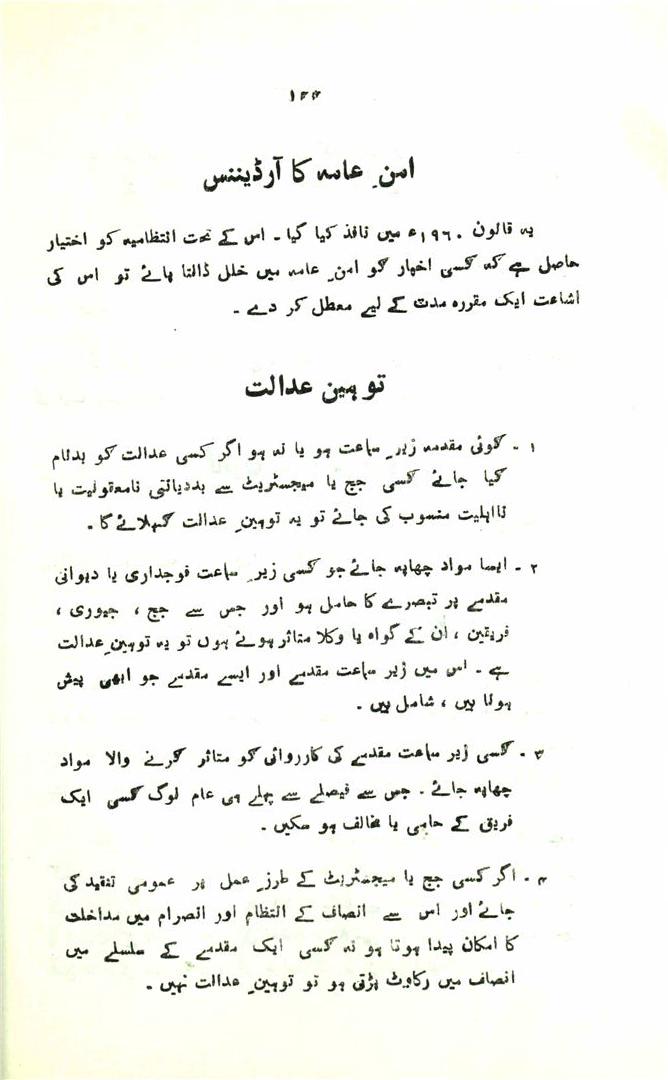 ۱۴۴
امنِ عامہ کا آرڈیننس
یہ قانون ۱۹۶۰ء میں نافذ کیا گیا ۔ اس کے تحت انتظامیہ کو اختیار
حاصل ہے کہ کسی اخبار کو امنِ عامہ میں خلل ڈالتا پائے تو اس کی
اشاعت ایک مقررہ مدت کے لیے معطل کر دے ۔
توہین عدالت
۱ ۔ کوئی مقدمہ زیرِ سماعت ہو یا نہ ہو اگر کسی عدالت کو بدنام
کیا جائے کسی جج یا میجسٹریٹ سے بددیانتی نامعقولیت یا
نااہلیت منسوب کی جائے تو یہ توہینِ عدالت کہلائے گا ۔
۲ ۔ ایسا مواد چھاپہ جائے جو کسی زیرِ سماعت فوجداری یا دیوانی
مقدمے پر تبصرے کا حامل ہو اور جس سے جج ، جیوری ،
فریقین ، ان کے گواہ یا وکلا متاثر ہوئے ہوں تو یہ توہینِ عدالت
ہے ۔ اس میں زیر سماعت مقدمے اور ایسے مقدمے جو ابھی پیش
ہونا ہیں ، شامل ہیں ۔
۳ ۔ کسی زیر سماعت مقدمے کی کارروائی کو متاثر کرنے والا مواد
چھاپہ جائے ۔ جس سے فیصلے سے پہلے ہی عام لوگ کسی ایک
فریق کے حامی یا مخالف ہو سکیں ۔
۴ ۔ اگر کسی جج یا میجسٹریٹ کے طرزِ عمل پر عمومی تنقید کی
جائے اور اس سے انصاف کے انتظام اور انصرام میں مداخلت
کا امکان پیدا ہوتا ہو نہ کسی ایک مقدمے کے سلسلے میں
انصاف میں رکاوٹ پڑتی ہو تو توہینِ عدالت نہیں ۔